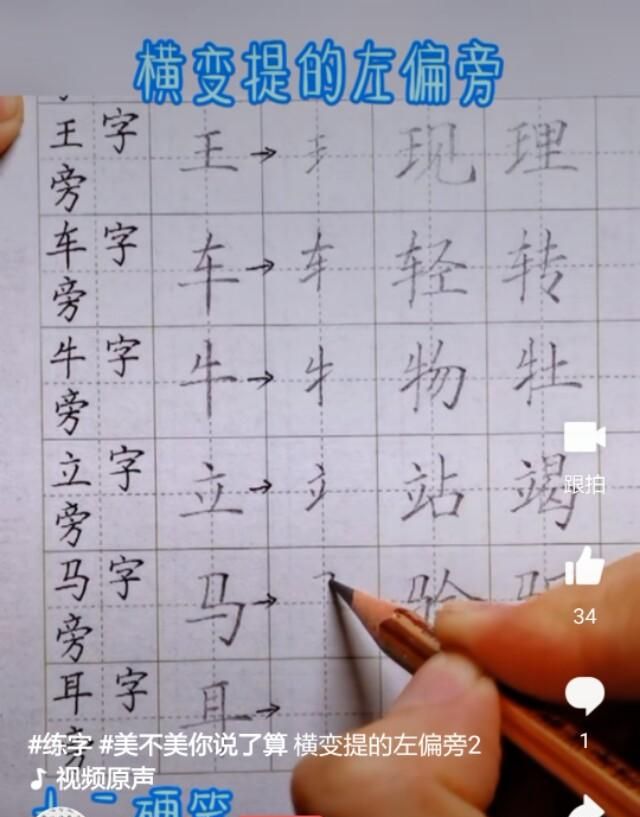 横变提的左偏旁
王字旁 王→王 现 理
车字旁 车→车 轻 转
牛字旁 牛→牜 物 牡
立字旁 立→立 站 竭
跟拍
马字旁 马→ 验
34
耳字旁 耳→
1
#练字 #美不美你说了算 横变提的左偏旁2
视频原声